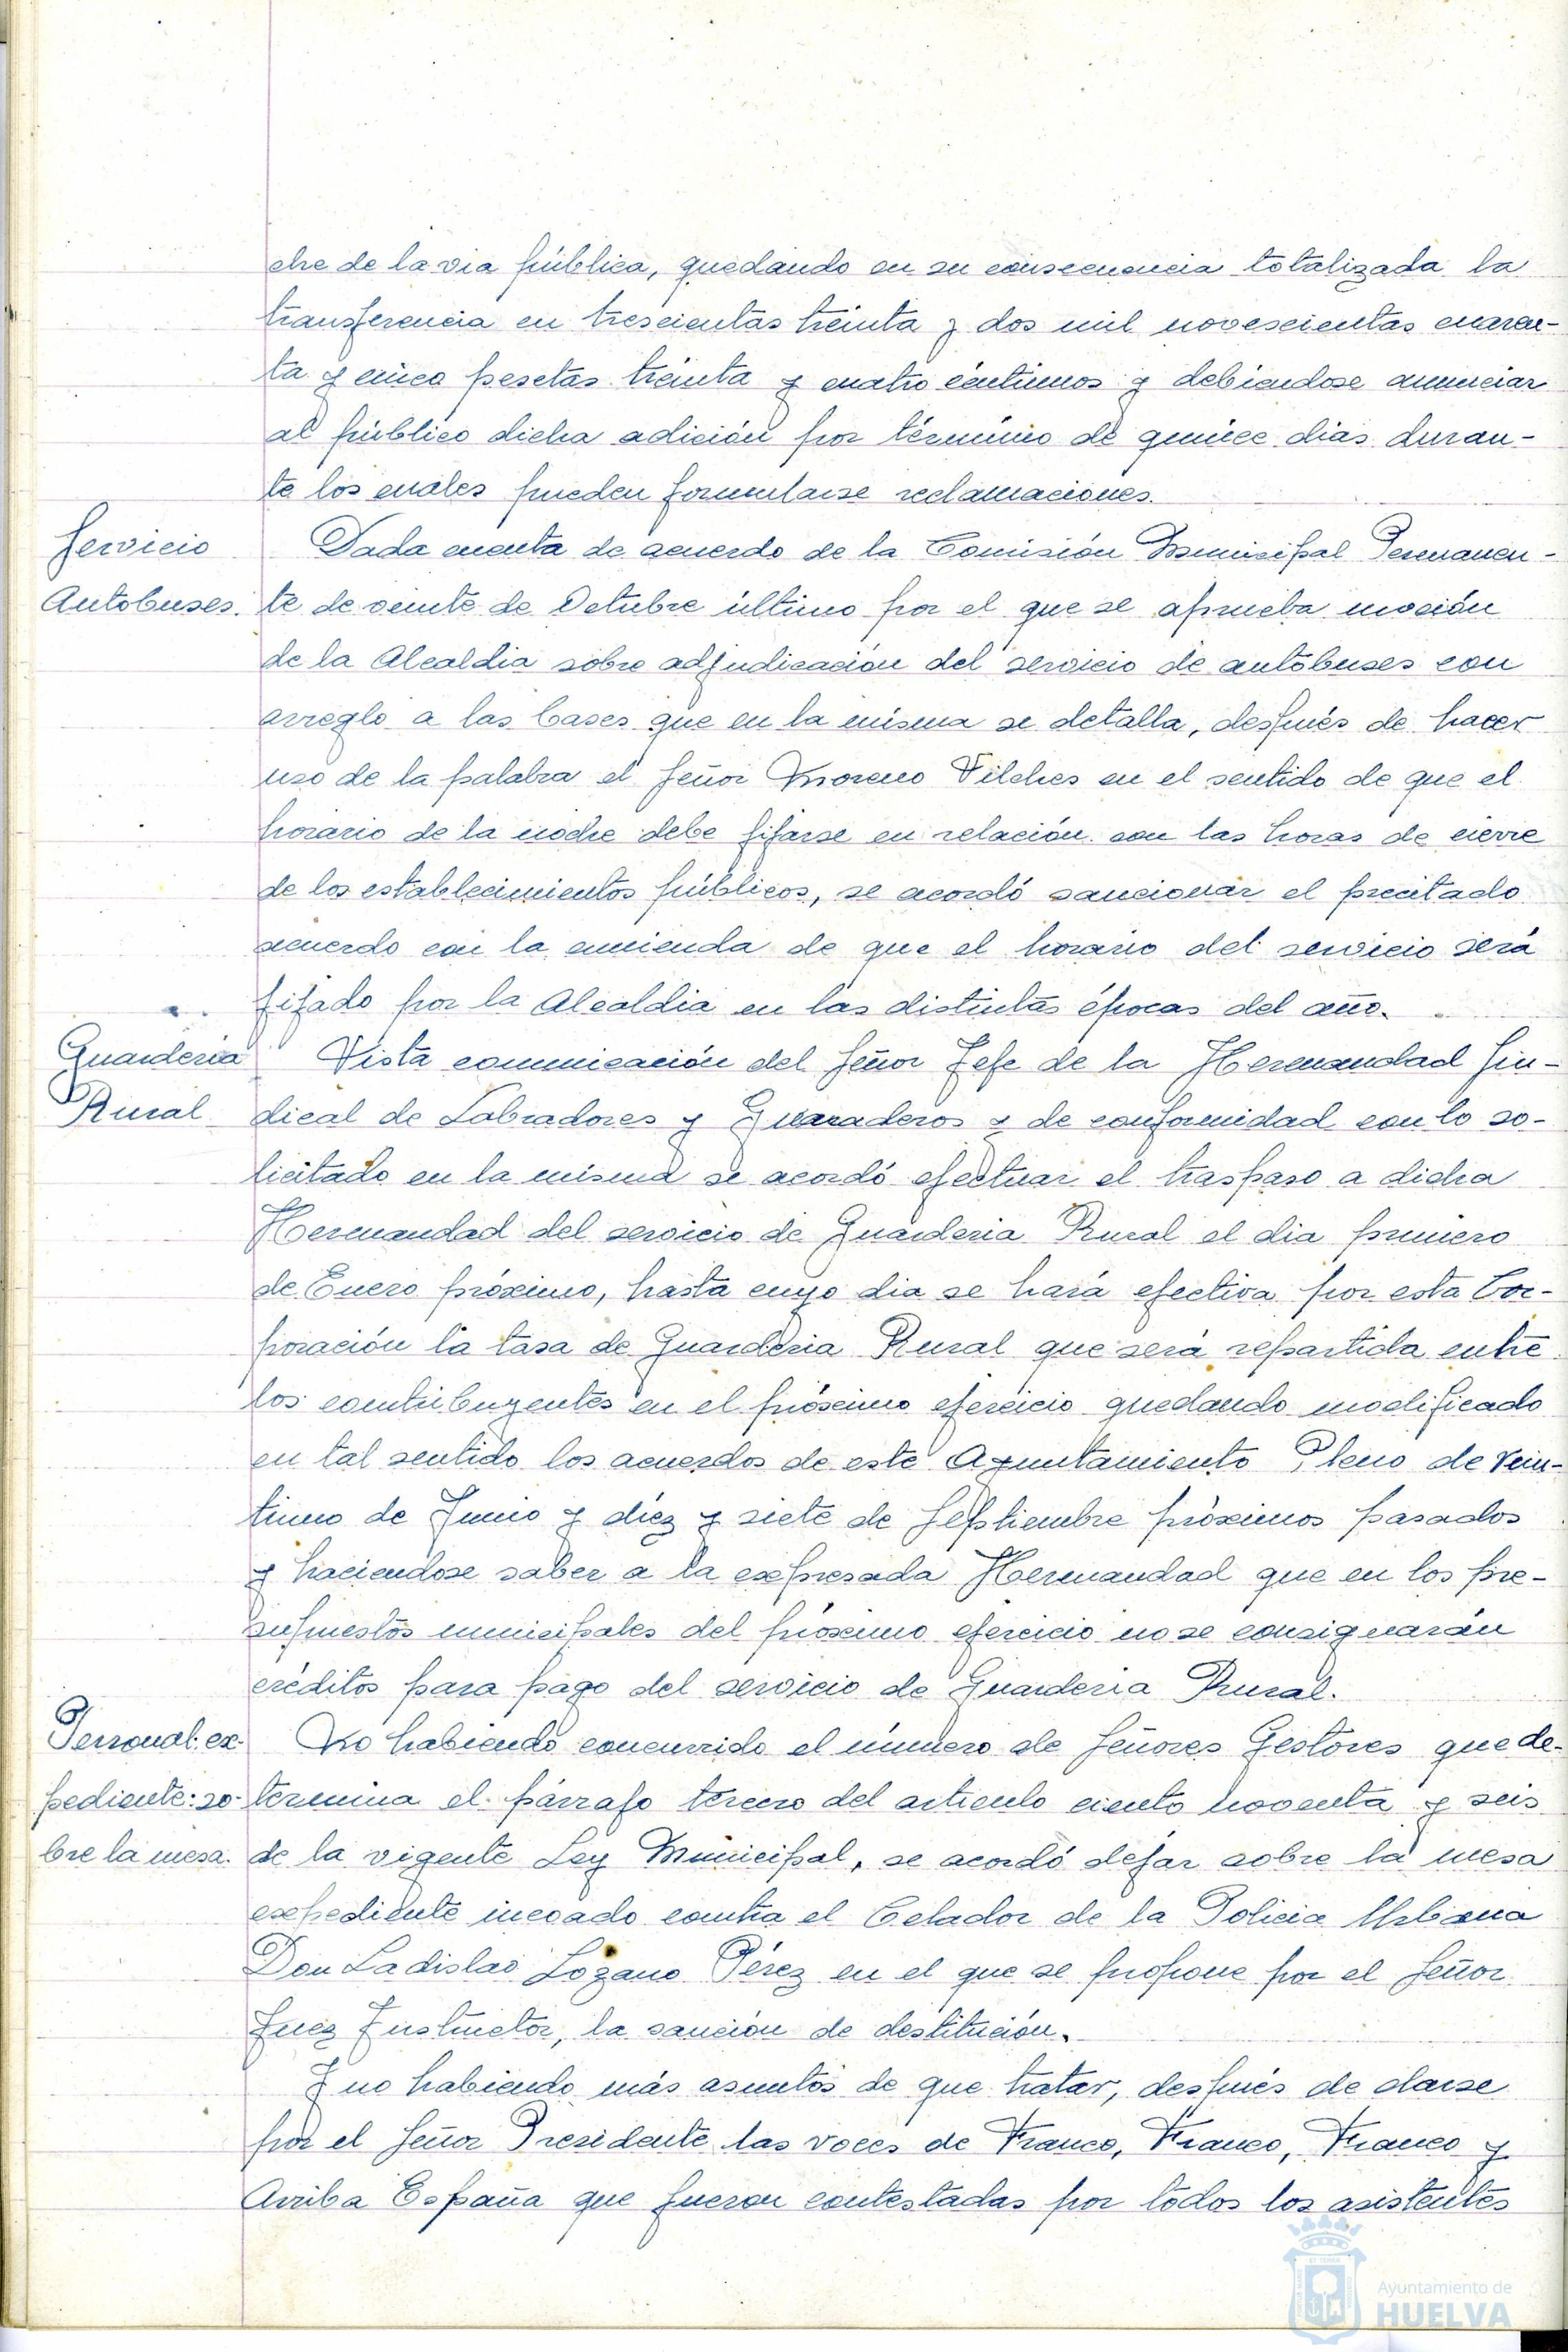 che de la via pública, quedando en su consecuencia totalizada la
transferencia en trescientas treinta y dos mil novescientas cuaren-
ta y cinco pesetas treinta y cuatro céntimos y debiendose anunciar
al público dicha adición por término de quince dias duran-
te los cuales pueden formularse reclamaciones.
Servicio Autobuses.
Dada cuenta de acuerdo de la Comisión Municipal Permanen-
te de veinte de Octubre último por el que se aprueba moción
de la Alcaldia sobre adjudicación del servicio de autobuses con
arreglo a las bases que en la misma se detalla, después de hacer
uso de la palabra el Señor Moreno Vilches en el sentido de que el
horario de la noche debe fijarse en relación con las horas de cierre
de los establecimientos públicos, se acordó sancionar el precitado
acuerdo con la enmienda de que el horario del servicio será
fijado por la Alcaldia en las distintas épocas del año.
Guarderia Rural
Vista comunicación del Señor Jefe de la Hermandad Sin-
dical de Labradores y Ganaderos y de conformidad con lo so-
licitado en la misma se acordó efectuar el traspaso a dicha
Hermandad del servicio de Guarderia Rural el dia primero
de Enero próximo, hasta cuyo dia se hará efectiva por esta Cor-
poración la tasa de Guarderia Rural que será repartida entre
los contribuyentes en el próximo ejercicio quedando modificado
en tal sentido los acuerdos de este Ayuntamiento Pleno de vein-
tiuno de Junio y diéz y siete de Septiembre próximos pasados
y haciendose saber a la expresada Hermandad que en los pre-
supuestos municipales del próximo ejercicio no se consignarán
créditos para pago del servicio de Guarderia Rural.
Personal: ex-
pediente: so-
bre la mesa.
No habiendo concurrido el número de Señores Gestores que de-
termina el párrafo tercero del articulo ciento noventa y seis
de la vigente Ley Municipal, se acordó dejar sobre la mesa
expediente incoado contra el Celador de la Policia Urbana
Don Ladislao Lozano Pérez en el que se propone por el Señor
Juez Instructor, la sanción de destitución.
Y no habiendo más asuntos de que tratar, después de darse
por el Señor Presidente las voces de Franco, Franco, Franco y
Arriba España que fueron contestadas por todos los asistentes
Ayuntamiento de
HUELVA